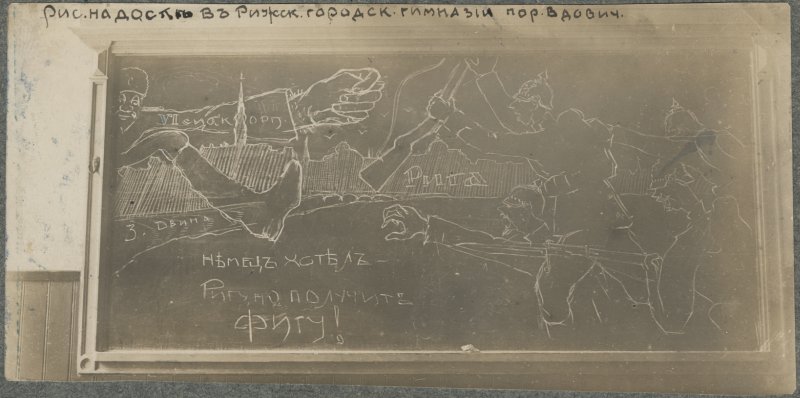 Рис. на доскѣ въ Рижск. городск. гимназіи пор. Вдович.
корп.
Рига
З. Двина
Нѣмецъ хотѣлъ –
Ригу, но получите
фигу!